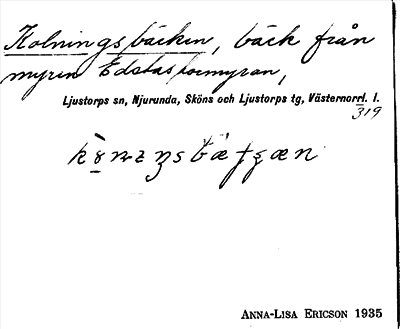 Kolningsbäcken, bäck från
myren Edstastormyran,
Ljustorps sn, Njurunda, Sköns och Ljustorps tg, Västernorrl. l.
319
ANNA-LISA ERICSON 1935